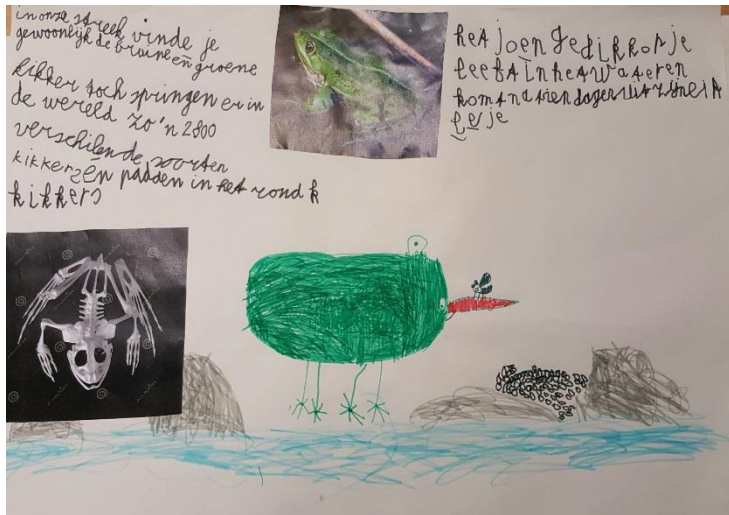 in onze streek vinde je
gewoonlijk de bruine en groene
kikker toch springen er in
de wereld zo'n 2800
verschilende soorten
kikkers én padden in het rond k
kikkers
het joenge dikkorsje
leefst in het wateren
komt na tien dagen uit zijn eit